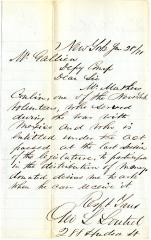 New York Jan 28/
Mr Gallien
Depy Compt
Dear Sir
Mr Matthew
one of the New York
Volunteers, who served
during the war with
Mexico and who is
entitled under the act
passed at the last session
of the Legislature, to participate
in the distribution of money
donated desires me to ask
when he can receive it
Respt Yours
Geo
211 Hudson St